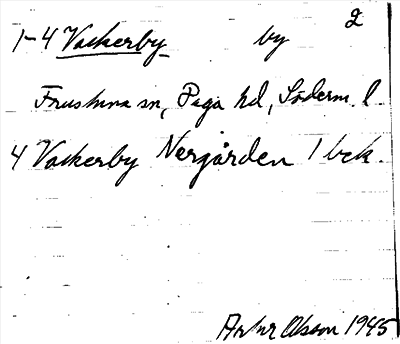 2
1-4 Vackerby by
Frustuna sn, Daga hd, Söderm. l.
4 Vackerby Nergården 1 bck.
Artur Olsson 1945